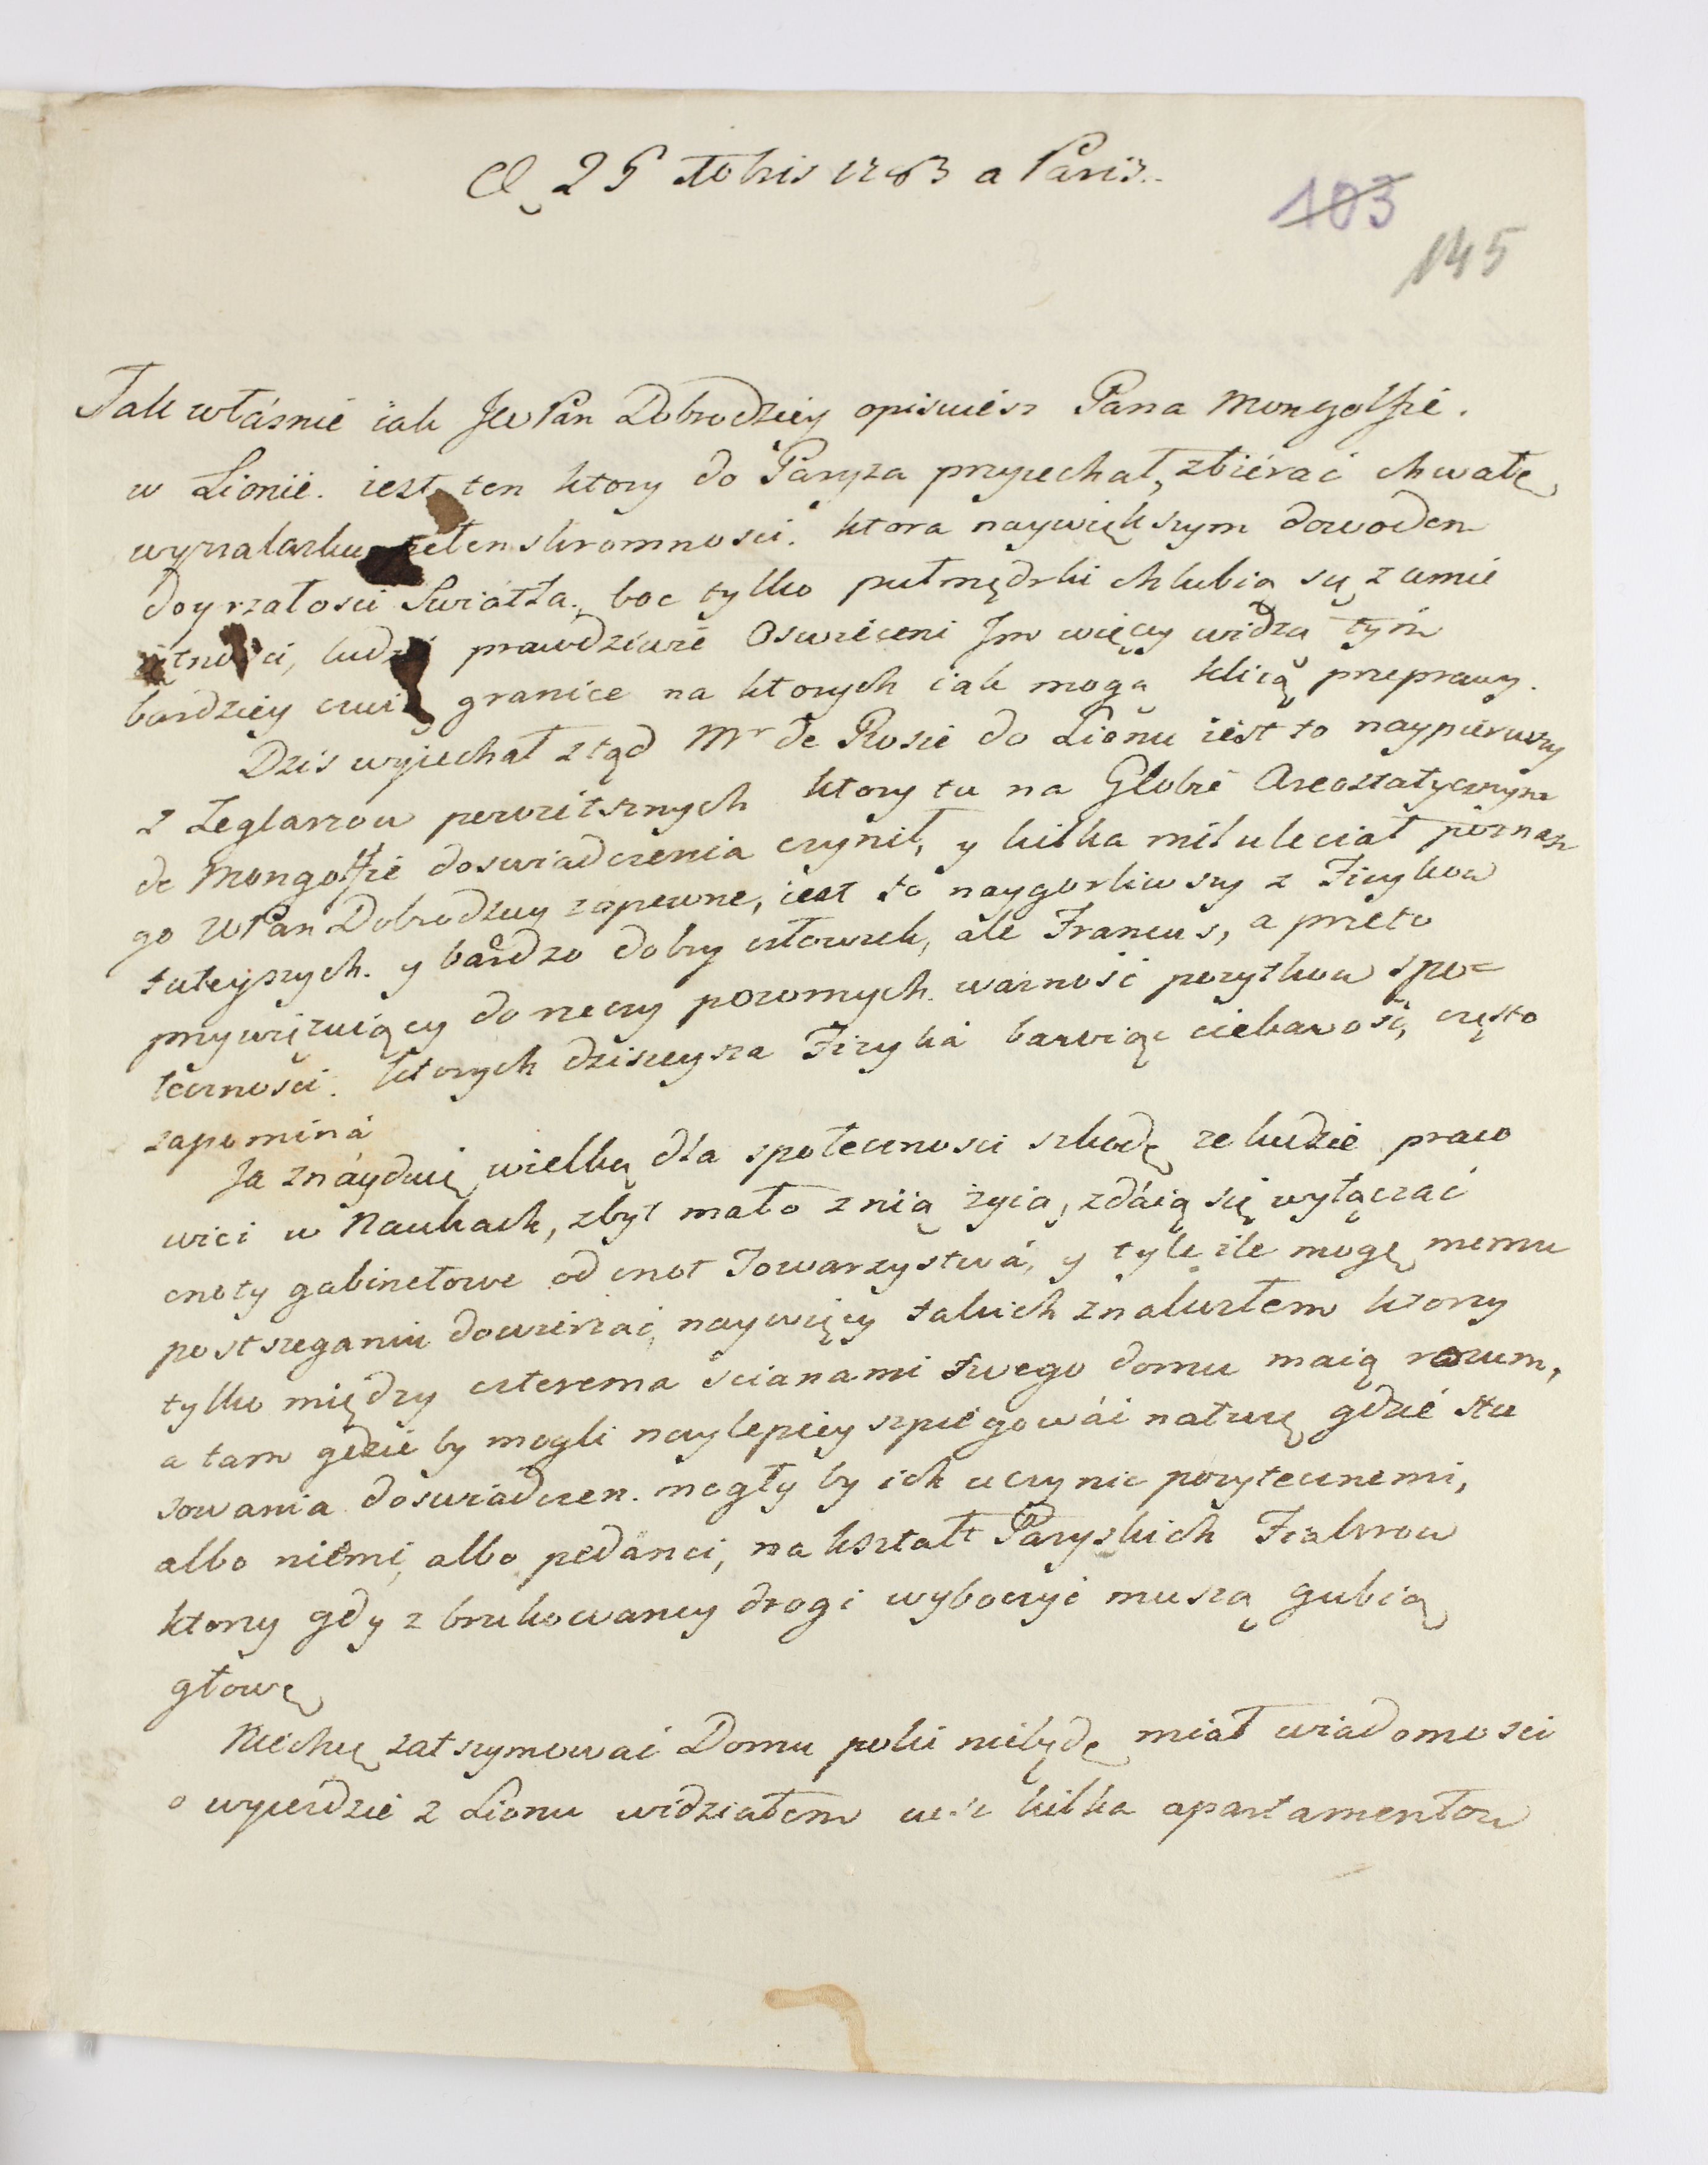 25 Xbris 1783 a Paris.
103
145
Tak własnie iak JW Pan Dobrodziey opisuiesz Pana Mongolfie.
w Lionie. iest ten ktory do Paryza przyiechał, zbierać chwałę
wynalasku pełen skromnosci. ktora naywiększym dowodem
doyrzałosci Swiatła, boc tylko pułmędrki chlubią się z umie
iętnosci, ludzi prawdziwie Oswieceni Im więcy widzą tym
bardziey czuią granice na ktorych iak mogą klicą przeprawy.
Dzis wyiechał ztąd Mr de Rosie do Lionu iest to naypierwszy
z Zeglarzow powietsznych ktory tu na Globie Areostatycznym
de Mongolfie doswiadczenia czynił, y kilka mil uleciał poznasz
go WPan Dobrodziey zapewne, iest to naygorliwszy z Fizykow
tuteyszych. y bardzo dobry człowiek, ale Francus, a przeto
przywięzuiący do rzeczy pozornych. warność pozytkow spo=
łecznosci. ktorych dzisieysza Fizyka bawiąc ciekawość, często
zapomina
Ja znayduię wielką dla społecznosci szkodę ze ludzie praco
wici w Naukach, zbyt mało z nią żyią, zdaią się wyłączać
cnoty gabinetowe od cnot Towarzystwa, y tyle ile mogę memu
postszeganiu dowierzać, naywięcy takich znalazłem ktorzy
tylko między czterema scianami swego domu maią rozum,
a tam gdzie by mogli naylepiey szpiegować naturę gdzie sto
sowania doswiadczen. mogły by ich uczynic pozytecznemi,
albo niemi, albo pedanci, na kształt Paryskich Fiakrow
ktorzy gdy z brukowaney drogi wyboczyć muszą gubią
głowę
Niechcę zatszymować Domu poki niebędę miał wiadomosci
o wyiezdzie z Lionu widziałem kilka apartamentow